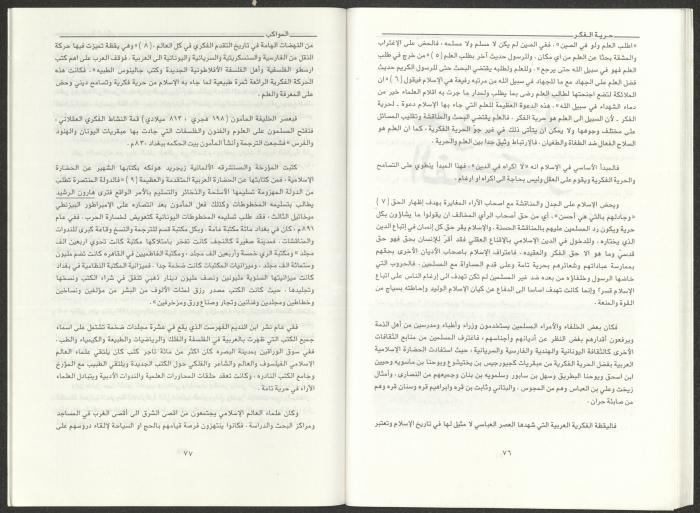 حرية الفكر
«اطلب العلم ولو في الصين». ففي الصين لم يكن لا مسلم ولا مسلمه ، فالحض على الإغتراب
والمشقة بحثا عن العلم من أي مكان . وللرسول حديث آخر بطلب العلم (٥) «من خرج في طلب
العلم فهو في سبيل الله حتى يرجع» . وللعلم ولطلبه يقتضي البحث حتى للرسول الكريم حديث
فضل العلم على الجهاد مع ما للجهاد في سبيل الله من مرتبه رفيعة في الإسلام فيقول (٦) «ان
الملائكة لتضع اجنحتها لطالب العلم رضى بما يطلب ولمداد ما جرت به اقلام العلماء خير من
دماء الشهداء في سبيل الله» . هذه الدعوة العظيمة للعلم التي جاء بها الإسلام دعوة ـ لحرية
الفكر ـ لأن السبيل الى العلم هو حرية الفكر . فالعلم يقتضي البحث والمناقشة وتقليب المسائل
على مختلف وجوهها ولا يمكن ان يتأتى ذلك في غير جو الحرية الفكرية ، كما ان العلم هو
السلاح الفعال ضد الطغاة والطغيان . فالإرتباط وثيق جدا بين العلم والحرية .
فالمبدأ الأساسي في الإسلام انه «لا اكراه في الدين» . فهذا المبدأ ينطوي على التسامح
والحرية الفكرية ويقوم على العقل وليس بحاجة الى اكراه او ارغام .
ويحض الإسلام على الجدل والمناقشة مع اصحاب الآراء المغايرة بهدف إظهار الحق (٧)
«وجادلهم بالتي هي أحسن» . أي من حق أصحاب الرأي المخالف ان يقولوا ما يشاؤون بكل
حرية ويكون رد المسلمين عليهم بالمناقشة الحسنة . والإسلام يقر حق كل إنسان في إتباع الدين
الذي يختاره ، وللدخول في الدين الإسلامي بالإقناع العقلي فقد أقر للإنسان بحق فهو حق
قدسي وما هو الا حق الفكر والعقيده . فاعتراف الإسلام باصحاب الأديان الأخرى بحقهم
بممارسة عباداتهم وشعائرهم بحرية تامة وعلى قدم المساواة مع المسلمين . فالحروب التي
خاضها الرسول وخلفاؤه من بعده ضد غير المسلمين لم تكن تهدف الى ارغام الناس على اتباع
الإسلام قسرآ وإنما كانت تهدف اساسا الى الدفاع عن كيان الإسلام الوليد وإحاطته بسياج من
القوة والمنعة .
فكان بعض الخلفاء والأمراء المسلمين يستخدمون وزراء وأطباء ومدرسين من أهل الذمة
ويرفعون أقدارهم بغض النظر عن أديانهم وأجناسهم . فاغترف المسلمين من منابع الثقافات
الأخرى كالثقافة اليونانية والهندية والفارسية والسريانية ، حيث استفادت الحضارة الإسلامية
العربية بفضل الحرية الفكرية من عبقريات كجبورجيس بن بختيشوع ويوحنا بن ماسويه وحنين
ابن اسحق ويوحنا البطريق وسهل بن سابور وسلمويه بن بنان وجميعهم من النصارى . وأمثال
زيخت وعلي بن العباس وهم من المجوس . والبتاني وثابت بن قره وابراهيم قره وسنان قره وهم
من صابئة حران .
فاليقظة الفكرية العربية التي شهدها العصر العباسي لا مثيل لها في تاريخ الإسلام وتعتبر
٧٦
المواكب
من النهضات الهامة في تاريخ التقدم الفكري في كل العالم . (٨) «وهي يقظة تميزت فيها حركة
النقل من الفارسية والسنسكريتية والسريانية واليونانية الى العربية . فوقف العرب على اهم كتب
ارسطو الفلسفية وأهل الفلسفة الأفلاطونية الجديدة وكتب جالينوس الطبية» . فكانت هذه
الحركة الفكرية الرائعة ثمرة طبيعية لما جاء به الإسلام من حرية فكرية وتسامح ديني وحض
على المعرفة والعلم .
فبعصر الخليفة المأمون (١٩٨ هجري ، ٨١٣ ميلادي) قمة النشاط الفكري العقلاني ،
ففتح المسلمون على العلوم والفنون والفلسفات التي جادت بها عبقريات اليونان والهنود
والفرس «فشجعت الترجمة وأنشأ المأمون بيت الحكمه ببغداد ٨٣٠م .
كتبت المؤرخة والمستشرقه الألمانية زيجريد هونكه بكتابها الشهير عن الحضارة
الإسلامية ، فمن كتاباتها عن الحضارة العربية المتقدمة والعظيمة (٩) «فالدولة المنتصرة تطلب
من الدولة المهزومة تسليمها الأسلحة والذخائر والتسليم بالأمر الواقع فترى هارون الرشيد
يطالب بتسليمه المخطوطات وكذلك فعل المأمون بعد انتصاره على الإمبراطور البيزنطي
ميخائيل الثالث . فقد طلب تسليمه المخطوطات اليونانية كتعويض لخسارة الحرب . ففي عام
٨٩١م ، كان في بغداد مائة مكتبة عامة . وبكل مكتبة قسم للترجمة والنسخ وقاعة كبرى للندوات
والمناقشات . فمدينة صغيرة كالنجف كانت تفخر بامتلاكها مكتبة كانت تحوي اربعين الف
مجلد «ومكتبة الري خمسة وأربعين الف مجلد . ومكتبة الفاطميين في القاهره كانت تضم مليون
وستمائة الف مجلد . وميزانيات المكتبات كانت ضخمة جدآ . فميزانية المكتبة النظامية في بغداد
كانت ميزانيتها السنوية مليونين ونصف مليون دينار ذهبي تنفق في شراء الكتب ونسخها
وتجليدها . حيث كانت الكتب مصدر رزق لمئات الألوف من البشر من مؤلفين ونساخين
وخطاطين ومجلدين وفنانين وتجار وصناع ورق ومزخرفين» .
ففي عام نشر ابن النديم الفهرست الذي يقع في عشرة مجلدات ضخمة تشتمل على اسماء
جميع الكتب التي ظهرت بالعربية في الفلسفة والفلك والرياضيات والطبيعة والكيمياء والطب .
ففي سوق الوراقين بمدينة البصره كان اكثر من مائة تاجر كتب كان يلتقي علماء العالم
الإسلامي الفيلسوف والعالم والشاعر والفلكي حول الكتب الجديدة ويلتقي الطبيب مع المؤرخ
وجامع الكتب النادره . وكانت تعقد حلقات المحاورات العلمية والندوات الأدبية ويتبادل العلماء
الآراء في حرية تامة .
وكان علماء العالم الإسلامي يجتمعون من اقصى الشرق الى أقصى الغرب في المساجد
ومراكز البحث والدراسة . فكانوا ينتهزون فرصة قيامهم بالحج او السياحة لإلقاء دروسهم على
٧٧